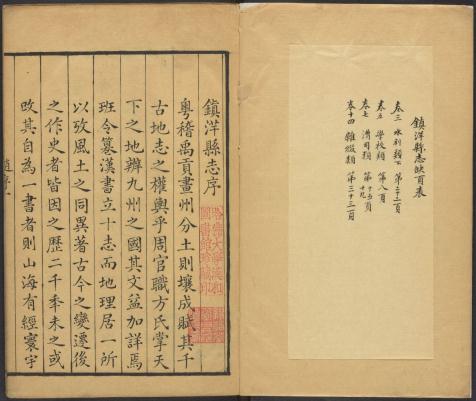 鎮洋縣志缺頁表
卷三 水利類下 第二十二頁
卷五 學校類 第八頁
卷七 漕司類 第十五頁 十九
卷十四 雜綴類 第三十三頁
鎮洋縣志序
粵稽禹貢畫州分土則壤成賦其千
古地志之權輿乎周官職方氏掌天
下之地辨九州之國其文益加詳焉
班令篡漢書立十志而地理居一所
以攷風土之同異著古今之變遷後
之作史者皆因之歷二千季未之或
改其自為一書者則山海有經寰宇
趙序一